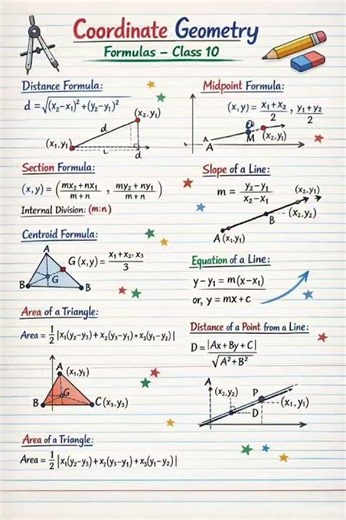 Coordinate Geometry
Formulas – Class 10
Distance Formula:
d = √(x₂–x₁)² + (y₂–y₁)²
(x₂,y₁)
d
(x₁,y₁)
d
Midpoint Formula:
(x,y) = x₁+x₂/2, y₁+y₂/2
M
(x₂,y₁)
A
Section Formula:
(x,y) = (mx₂+nx₁/m+n, my₂+ny₁/m+n)
Internal Division: (m:n)
Slope of a Line:
m = y₂–y₁/x₂–x₁
(x₂,y₁)
(x₂,y₂)
B
A (x₁,y₁)
Centroid Formula:
A
G(x,y) = x₁+x₂.x₃/3
G
B
B
Equation of a Line:
y–y₁ = m(x–x₁)
or, y = mx+c
Area of a Triangle:
Area = 1/2 |x₁(y₂–y₃)+x₂(y₃–y₁)+x₃(y₁–y₂)|
A (x₁,y₁)
G
B
C(x₃,y₃)
Distance of a Point from a Line:
D = |Ax+By+C|/√A²+B²
A
(x₂,y₂)
P
(x₁,y₁)
D
Area of a Triangle:
Area = 1/2 |x₁(y₂–y₃)+x₂(y₃–y₁)+x₃(y₁–y₂)|